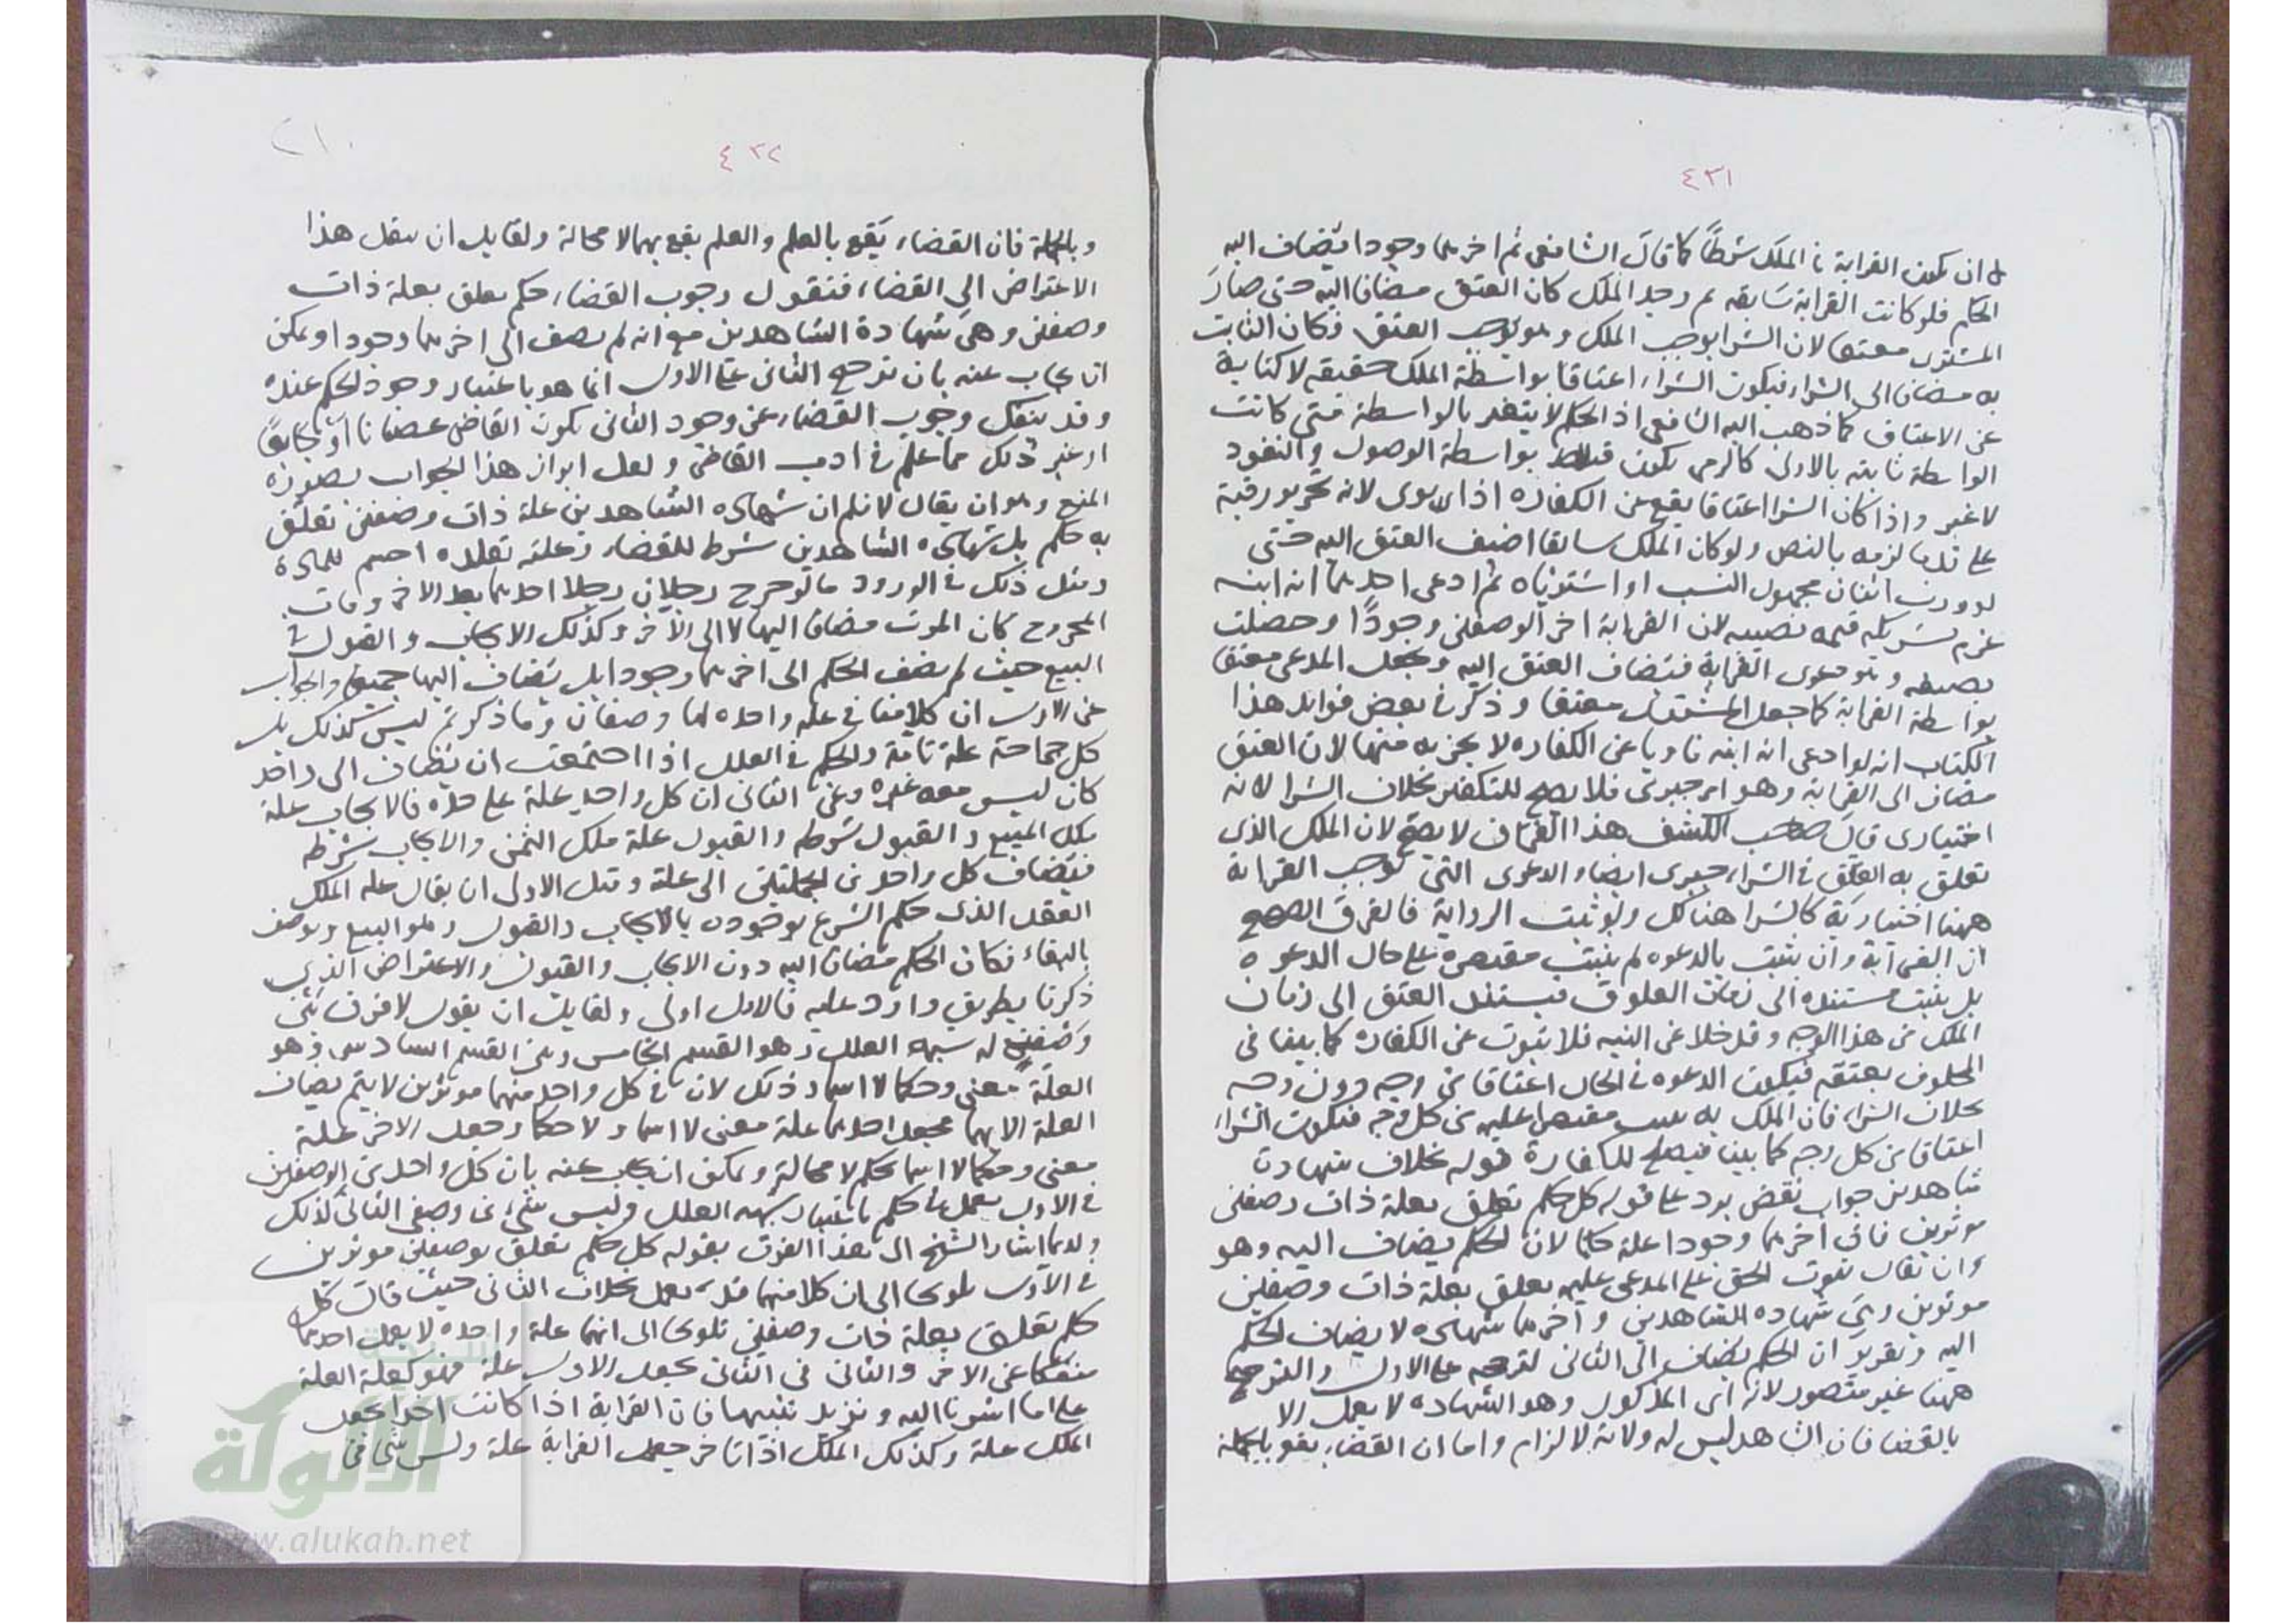 ٤٣١
ان يكون القرابة فالملك شرطا كما قال الشافعي ثم اخرهما وجودا يضاف اليه
الحكم فلو كانت القرابة سابقه ثم وجد الملك كان العتق مضافا اليه حتى صار
المشترى معتقا لان الشرا يوجب الملك وهو يوجب العتق فكان الثابت
به مضافا الى الشراء فيكون الشراء اعتاقا بواسطة الملك حقيقه لا كناية
عن الاعتاق كما ذهب اليه الشافعي اذ الحكم لا يتغير بالواسطة فمتى كانت
الواسطة ثابته بالاولى كالرمي يكون قتلا بواسطة الوصول والنفوذ
لا غير واذا كان الشرا اعتاقا يقع عن الكفاره اذا نوى لانه تحرير رقبة
على قدر ما لزمه بالنص ولو كان الملك سابقا اضيف العتق اليه حتى
لو ورث اثنان مجهول النسب او اشترياه ثم ادعى احدهما انه ابنه
غرم لشريكه قيمه نصيبه لان القرابة اخر الوصفين وجودا وحصلت
بصنعه وهو دعوى القرابة فتضاف العتق اليه ويجعل المدعى معتقا
بواسطة القرابة كما جعل المشترى معتقا وذكر في بعض فوائد هذا
الكتاب انه لو ادعى انه ابنه ناويا عن الكفاره لا يجزيه منها لان العتق
مضاف الى القرابة وهو امر جبرى فلا يصح للتكفير بخلاف الشرا لانه
اختيارى قال صاحب الكشف هذا الفرق لا يصح لان الملك الذى
تعلق به العتق في الشراء جبرى ايضا والدعوى التي توجب القرابة
ههنا اختيارية كالشرا هناك ولو ثبتت الرواية فالفرق الصحيح
ان القرابة وان يثبت بالدعوه لم يثبت مقتصرة على حال الدعوه
بل يثبت مستنده الى زمان العلوق فيستند العتق الى زمان
الملك من هذا الوجه وقد خلا عن النيه فلا ينوب عن الكفاره كما بينا في
المحلوف بعتقه فيكون الدعوه في الحال اعتاقا من وجه دون وجه
بخلاف الشراء فان الملك به يثبت مقتصرا عليه من كل وجه فيكون الشراء
اعتاقا من كل وجه كما بينا فيصلح للكفارة قوله بخلاف شهادت
شاهدين جواب نقض يرد على قوله كل حكم تعلق بعلة ذات وصفين
موثرين فان اخرهما وجودا علة حكما لان الحكم يضاف اليه وهو
وان يقال ثبوت الحق على المدعى عليه تعلق بعلة ذات وصفين
موثرين وهى شهاده الشاهدين واخرهما شهاده لا يضاف الحكم
اليه وتقريره ان الحكم يضاف الى الثانى لترجحه على الاول والترجيح
ههنا غير متصور لانه اى المذكور وهو الشهاده لا يعمل الا
بالقضا فان الشاهد ليس له ولاية الالزام واما ان القضاء يقع بالجملة
٤٣٢
وبالجملة فان القضاء يقع بالعلم والعلم يقع بهما لا محالة ولقايل ان ينقل هذا
الاعتراض الى القضاء فنقول وجوب القضاء حكم تعلق بعلة ذات
وصفين وهي شهادة الشاهدين مع انه لم يضف الى اخرهما وجودا ويمكن
ان يجاب عنه بان ترجح الثانى على الاول انما هو باعتبار وجود الحكم عنده
وقد ينفك وجوب القضاء عن وجود الثانى بكون القاضى غضبانا او جايعا
او غير ذلك مما علم في ادب القاضى ولعل ابراز هذا الجواب بصورة
المنع وهو ان يقال لا نسلم ان شهاده الشاهدين علة ذات وصفين تعلق
به حكم بل شهاده الشاهدين شرط للقضاء وعلته تقلده احسم للماده
ومثل ذلك في الورود ما لو جرح رجلان رجلا احدهما بعد الاخر ومات
المجروح كان الموت مضافا اليهما لا الى الاخر وكذلك الايجاب والقبول في
البيع حيث لم يضف الحكم الى اخرهما وجودا بل يضاف اليهما جميعا والجواب
عن الاول ان كلامنا في علة واحده لها وصفان وما ذكرتم ليس كذلك بل
كل جراحة علة تامة والحكم في العلل اذا اجتمعت ان يضاف الى واحد
كان ليس معه غيره وعن الثانى ان كل واحد علة على حده فالايجاب علة
ملك المبيع والقبول شرطه والقبول علة ملك الثمن والايجاب شرطه
فيضاف كل واحد من الحكمين الى علة وقيل الاولى ان يقال علة الملك
العقد الذى حكم الشرع بوجوده بالايجاب والقبول وهو البيع ويوصف
بالبقاء فكان الحكم مضافا اليه دون الايجاب والقبول والاعتراض الذى
ذكرنا بطريق وارد عليه فالاول اولى ولقايل ان يقول لا فرق بين
وصفين له شبهه العلل وهو القسم الخامس وبين القسم السادس وهو
العلة معنى وحكما لا اسما وذلك لان في كل واحد منهما موثرين لا يتم نصاب
العلة الا بهما فجعل احدهما علة معنى لا اسما ولا حكما وجعل الاخر علة
معنى وحكما لا اسما تحكم لا محالة ويمكن ان يجاب عنه بان كل واحد من الوصفين
في الاول يعمل في حكم باعتبار شبهه العلل وليس شئ من وصفى الثانى كذلك
ولهذا اشار الشيخ الى هذا الفرق بقوله كل حكم تعلق بوصفين موثرين
في الاول تلويحا الى ان كلا منهما قد يعمل بخلاف الثانى حيث قال كل
حكم تعلق بعلة ذات وصفين تلويحا الى انهما علة واحده لا يعمل احدهما
منفكا عن الاخر والثانى في الثانى يجعل الاول علة فهو كعلة العلة
على ما اشرنا اليه ونزيد تنبيها فان القرابة اذا كانت اخرا يجعل
الملك علة وكذلك الملك اذا تاخر يجعل القرابة علة وليس شئ من
الألوكة
www.alukah.net